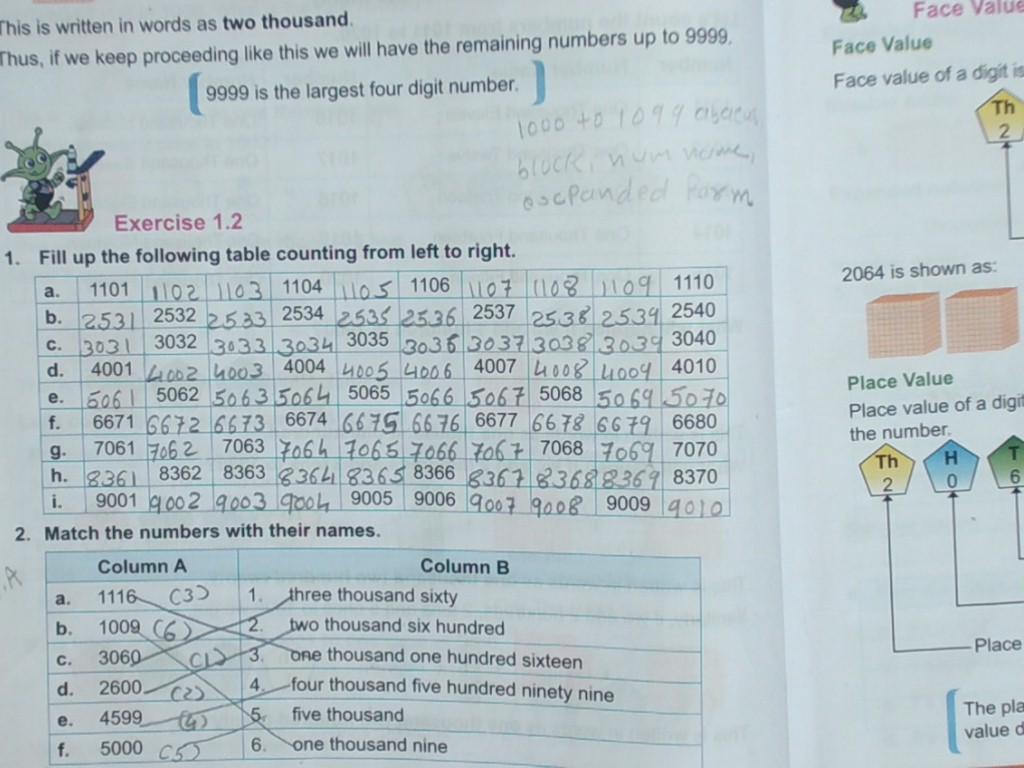 This is written in words as two thousand.
Thus, if we keep proceeding like this we will have the remaining numbers up to 9999.
9999 is the largest four digit number.
1000 to 1099 abacus
block, num name,
escpanded Form
Exercise 1.2
1. Fill up the following table counting from left to right.
a. 1101 1102 1103 1104 1105 1106 1107 1108 1109 1110
b. 2531 2532 2533 2534 2535 2536 2537 2538 2539 2540
c. 3031 3032 3033 3034 3035 3036 3037 3038 3039 3040
d. 4001 4002 4003 4004 4005 4006 4007 4008 4009 4010
e. 5061 5062 5063 5064 5065 5066 5067 5068 5069 5070
f. 6671 6672 6673 6674 6675 6676 6677 6678 6679 6680
g. 7061 7062 7063 7064 7065 7066 7067 7068 7069 7070
h. 8361 8362 8363 8364 8365 8366 8367 8368 8369 8370
i. 9001 9002 9003 9004 9005 9006 9007 9008 9009 9010
2. Match the numbers with their names.
Column A Column B
a. 1116 (3) 1. three thousand sixty
b. 1009 (6) 2. two thousand six hundred
c. 3060 (1) 3. one thousand one hundred sixteen
d. 2600 (2) 4. four thousand five hundred ninety nine
e. 4599 (4) 5. five thousand
f. 5000 (5) 6. one thousand nine
Face Value
Face Value
Face value of a digit is
Th
2
2064 is shown as:
Place Value
Place value of a digit
the number.
Th H T
2 0 6
Place
The pla
value o